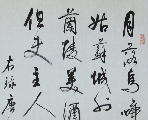 月落烏啼
姑蘇城外
蘭陵美酒
但使主人
右錄唐